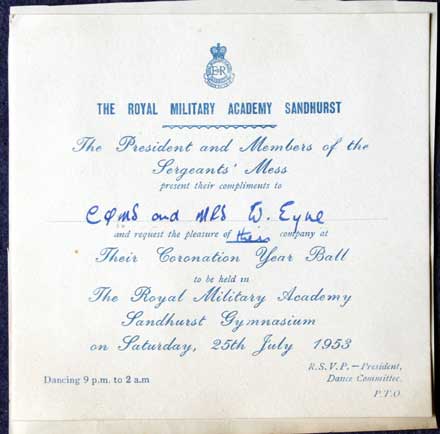 E II R
THE ROYAL MILITARY ACADEMY SANDHURST
The President and Members of the
Sergeants' Mess
present their compliments to
CQMS and MRS W. Eyre
and request the pleasure of their company at
Their Coronation Year Ball
to be held in
The Royal Military Academy
Sandhurst Gymnasium
on Saturday, 25th July 1953
R.S.V.P.—President,
Dancing 9 p.m. to 2 a.m
Dance Committee.
P.T.O.